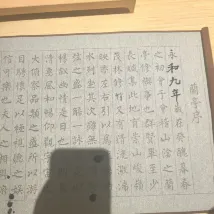 蘭亭序
永和九年歲在癸丑暮春
之初會于會稽山陰之蘭
亭脩禊事也群賢畢至少
長咸集此地有崇山峻領
茂林脩竹又有清流激湍
映帶左右引以為
水列坐其次雖無
弦之盛一觴一詠
暢敘幽情是日也
清惠風和暢仰觀
大俯察品類之盛所以遊
目騁懷足以極視聽之娛
信可樂也夫人之相